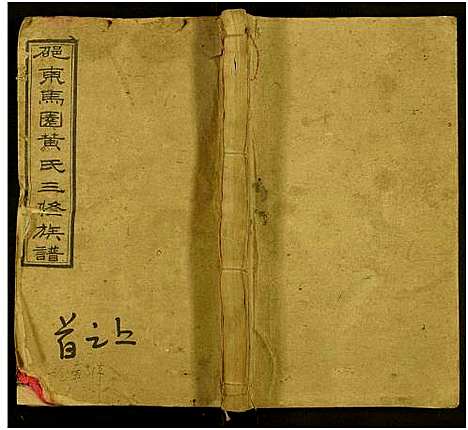 邑東馬園黃氏三修族譜
首之上